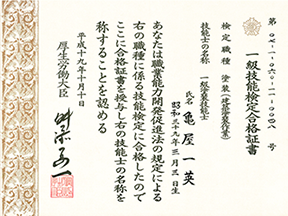 一級技能検定合格証書
検定職種 塗装（建築塗装作業）
技能士の名称 一級塗装技能士
氏名 亀屋一英
昭和三十九年三月三日生
あなたは職業能力開発促進法の規定による
右の職種に係る技能検定に合格したので
ここに合格証書を授与し右の技能士の名称を
称することを認める
平成十九年十月十日
厚生労働大臣